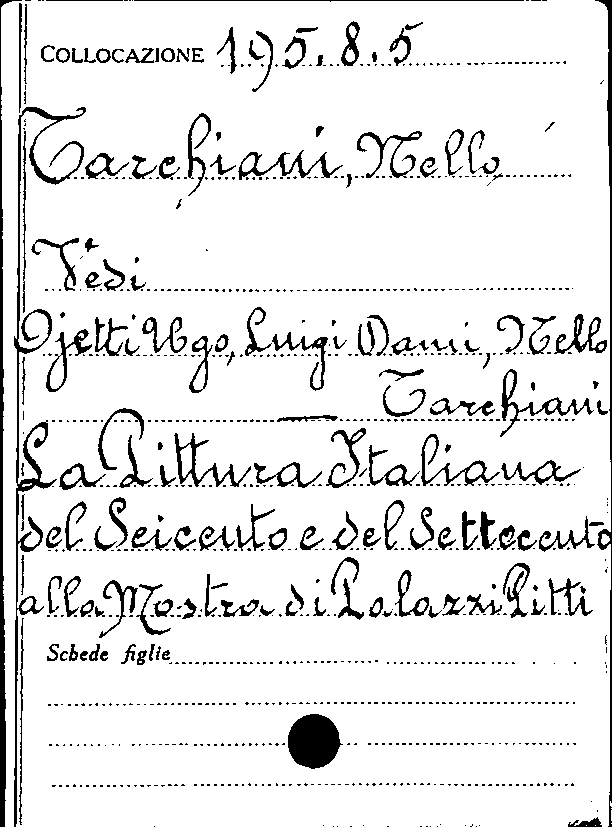 COLLOCAZIONE 195.8.5
Tarchiani, Nello
Vedi
Ojetti Ugo, Luigi Dami, Nello
— Tarchiani
La Pittura Italiana
del Seicento e del Settecento
alla Mostra di Palazzi Pitti
Schede figlie